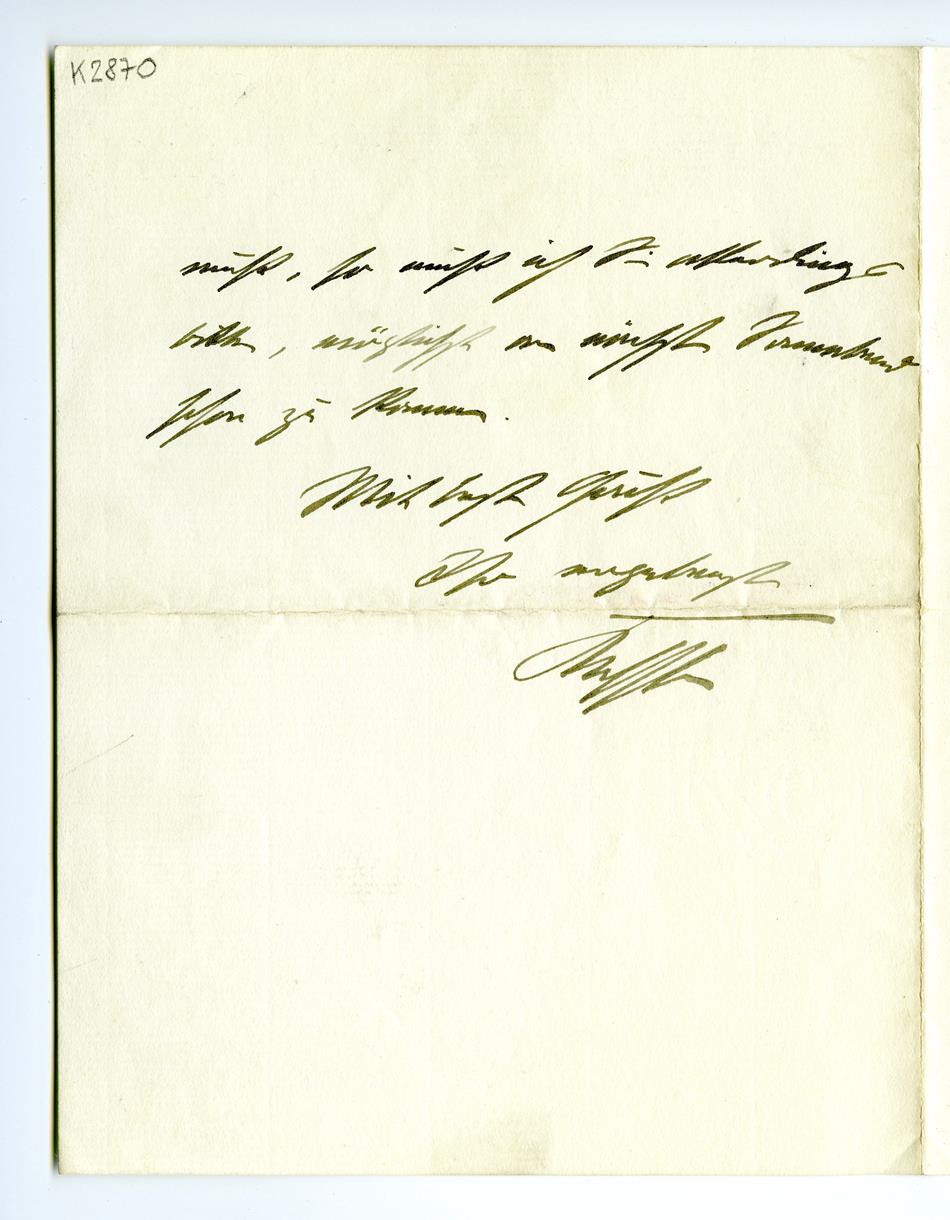 K2870
muß, so muß ich Sie allerdings
bitten, möglichst am nächsten Sonnabend
schon zu kommen.
Mit best Gruß
Ihr ergebenst